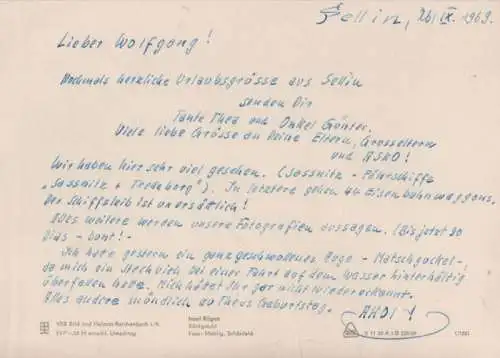 Sellin, 26. IX. 1969.
Lieber Wolfgang!
Nochmals herzliche Urlaubsgrüsse aus Sellin
senden Dir
Tante Thea und Onkel Günter.
Viele liebe Grüsse an Deine Eltern, Grosseltern
und ASKO!
Wir haben hier sehr viel gesehen. (Sassnitz - Fährschiffe
"Sassnitz + Trelleborg"). In letztere gehen 44 Eisenbahnwaggons.
Der Schiffsleib ist unersättlich!
Alles weitere werden unsere Fotografien aussagen. (Bis jetzt 20
Dias - bunt! -
Ich habe gestern ein ganz geschwollenes Auge - Matschgockel -,
da mich ein Stechvieh bei einer Fahrt auf dem Wasser hinterhältig
überfallen habe. Mich hätte Ihr gar nicht wiedererkannt.
Alles andere mündlich ab Theas Geburtstag.
AHOI
VEB Bild und Heimat Reichenbach i. V.
Insel Rügen
Königsstuhl